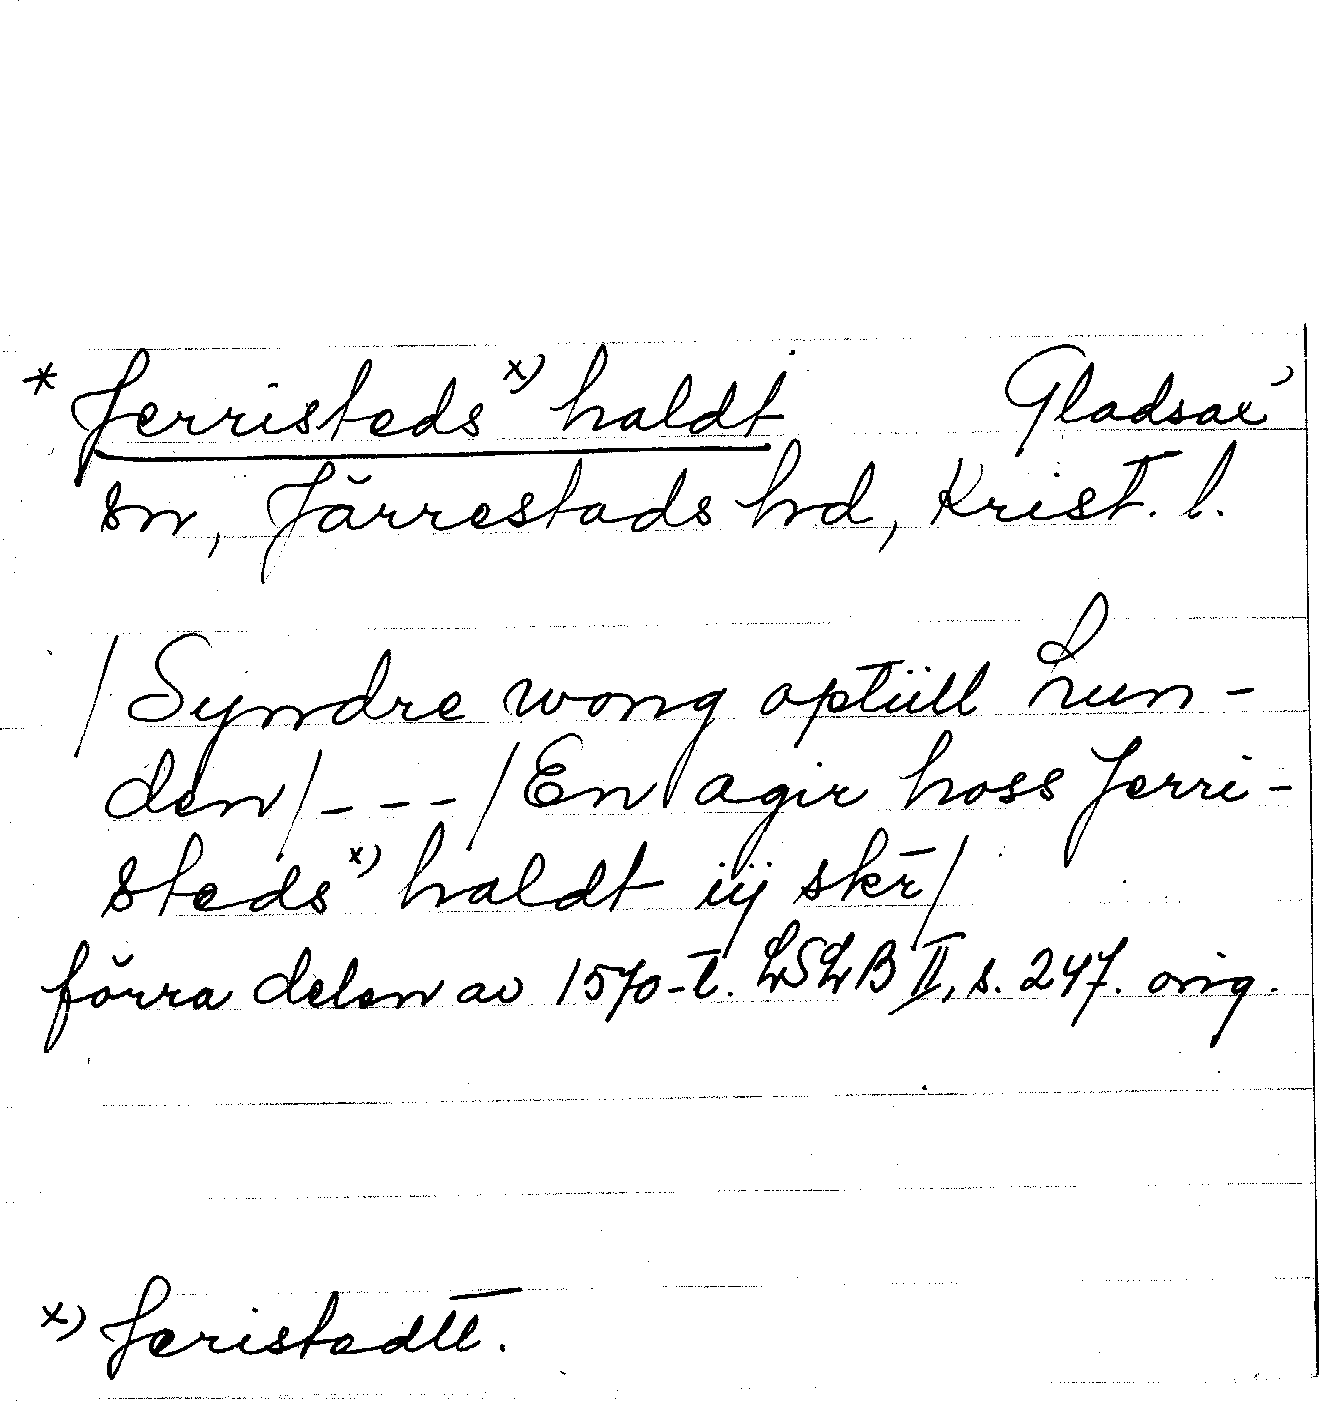 * Jerristeds x) haldt Gladsax
sn, Järrestads hd, Krist. l.
/Syndre wong optiill Lun-
den/---/En agir hoss Jerri-
steds x) haldt iij skr/
förra delen av 1570-t. LSLB II, s. 247. orig.
x) Jeristedtt.